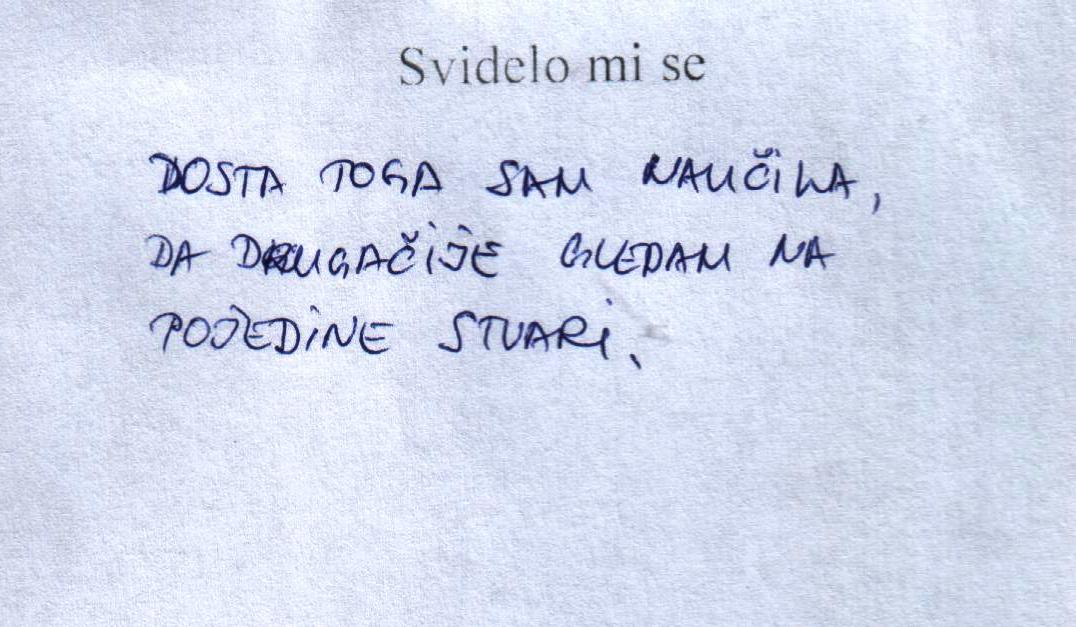 Svidelo mi se
DOSTA TOGA SAM NAUČILA,
DA DRUGAČIJE GLEDAM NA
POJEDINE STVARI.